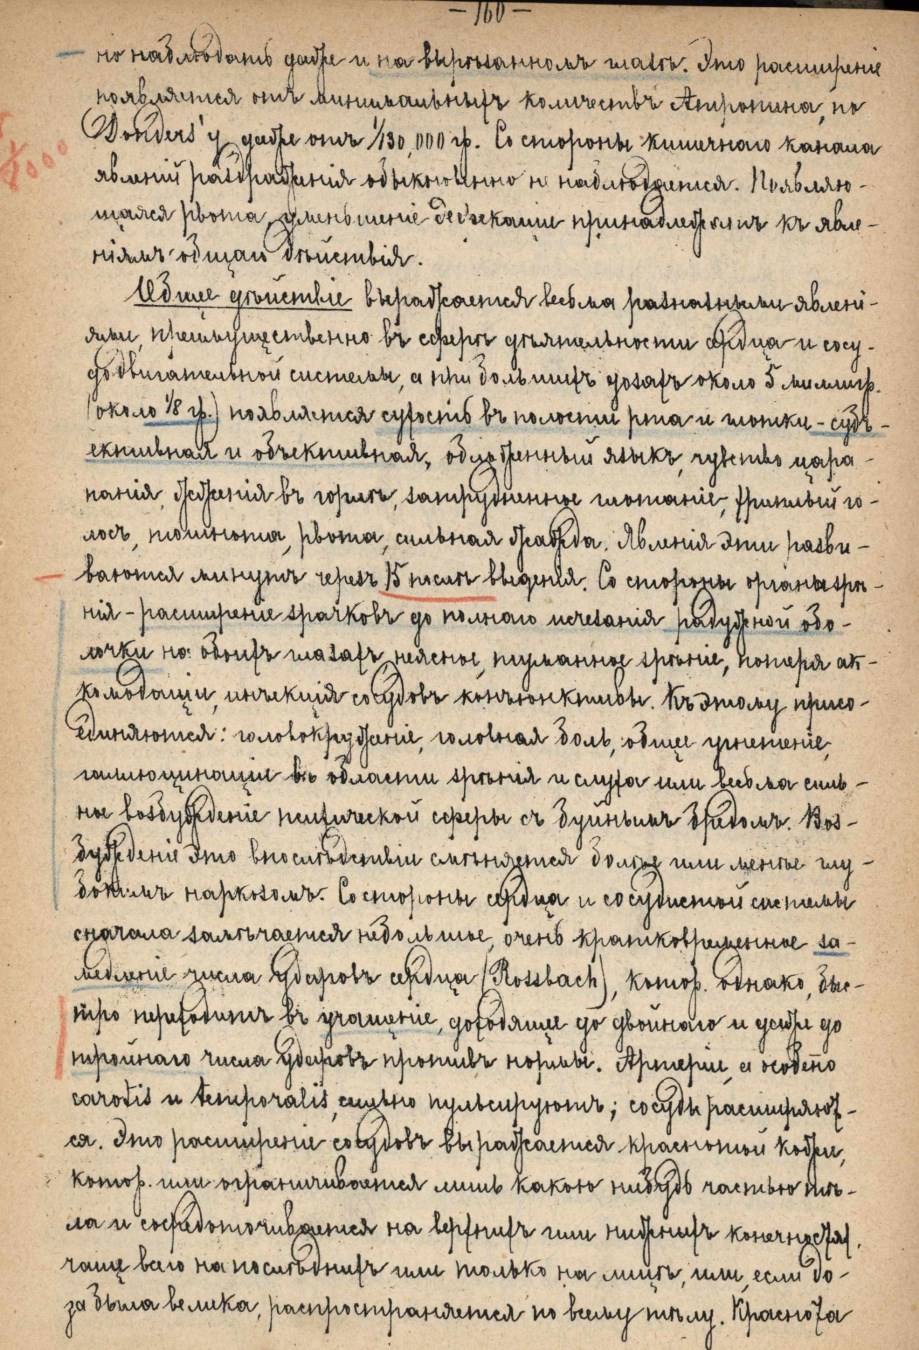 — 160 —
но наблюдать даже и на вырѣзанномъ глазѣ. Это расширеніе
появляется отъ минимальныхъ количествъ Атропина, по
Donders'у даже отъ 1/130,000 гр. Со стороны кишечнаго канала
явленій раздраженія обыкновенно не наблюдается. Появляю-
щаяся рвота, уменьшеніе дефекаціи принадлежатъ къ явле-
ніямъ общаго дѣйствія.
Общее дѣйствіе выражается весьма разнатными явлені-
ями, преимущественно въ сферѣ дѣятельности сердца и сосу-
додвигательной системы, а при большихъ дозахъ около 5 миллигр.
(около 1/8 гр.) появляется сухость въ полости рта и глотки - субъ-
ективная и объективная, обложенный языкъ, чувство цара-
панія, жженія въ горлѣ, затрудненное глотаніе, хриплый го-
лосъ, тошнота, рвота, сильная жажда. Явленія эти разви-
ваются минутъ черезъ 15 послѣ введенія. Со стороны органа зрѣ-
нія - расширеніе зрачковъ до полнаго исчезанія радужной обо-
лочки на обоихъ глазахъ, неясное, туманное зрѣніе, потеря ак-
комодаціи, инъекція сосудовъ конъюнктивы. Къ этому присо-
единяются: головокруженіе, головная боль, общее угнетеніе,
галлюцинаціи въ области зрѣнія и слуха или весьма силь-
ное возбужденіе психической сферы съ буйнымъ бредомъ. Воз-
бужденіе это впослѣдствіи смѣняется болѣе или менѣе глу-
бокимъ наркозомъ. Со стороны сердца и сосудистой системы
сначала замѣчается небольшое, очень кратковременное за-
медленіе числа ударовъ сердца (Rossbach), котор. однако, быс-
тро переходитъ въ учащеніе, доходящее до двойнаго и даже до
тройнаго числа ударовъ противъ нормы. Артеріи, а особено
carotis и temporalis, сильно пульсируютъ; сосуды расширяют-
ся. Это расширеніе сосудовъ выражается краснотой кожи,
котор. или ограничивается лишь какою нибудь частью тѣ-
ла и сосредоточивается на верхнихъ или нижнихъ конечностях,
чаще всего на послѣднихъ или только на лицѣ, или, если до-
за была велика, распространяется по всему тѣлу. Краснота